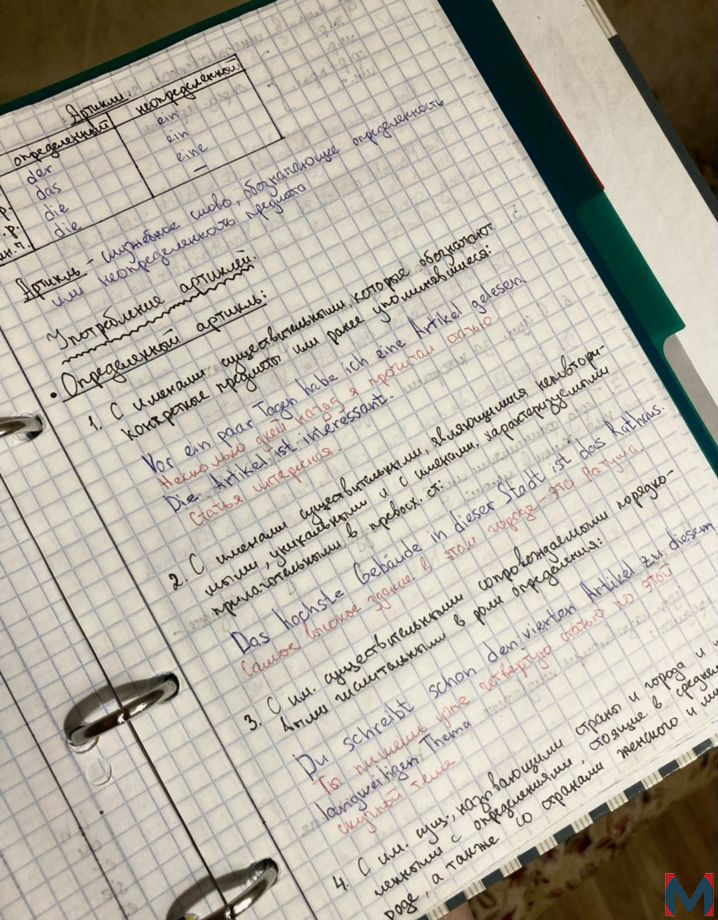 Артикли:
определенный неопределенной
der ein
das ein
die eine
die —
Артикль - служебное слово, обозначающее определенность
или неопределенность предмета
Употребление артиклей.
Определенной артикль:
1. С именами существительными которые обозначают
конкретные предметы или ранее упоминавшиеся:
Vor ein paar Tagen habe ich eine Artikel gelesen.
Несколько дней назад я прочитал статью
Die Artikel ist interessant.
Статья интересная.
2. С именами существительными, являющимися неповтори-
мыми, уникальными и с именами, характеризуемыми
прилагательными, в превосх. ст:
Das höchste Gebäude in dieser Stadt ist das Rathaus.
Самое высокое здание в этом городе - это Ратуша
3. С им. существительными сопровождаемыми порядко-
выми числительными в роли определения:
Du schreibt schon den vierten Artikel zu diesem
Ты пишешь уже четвертую статью по этой
langweiligen Thema
скучной теме
4. С им. сущ., называющими страны и города и
менными с определениями, стоящие в средне
роде, а также со странами женского и
M